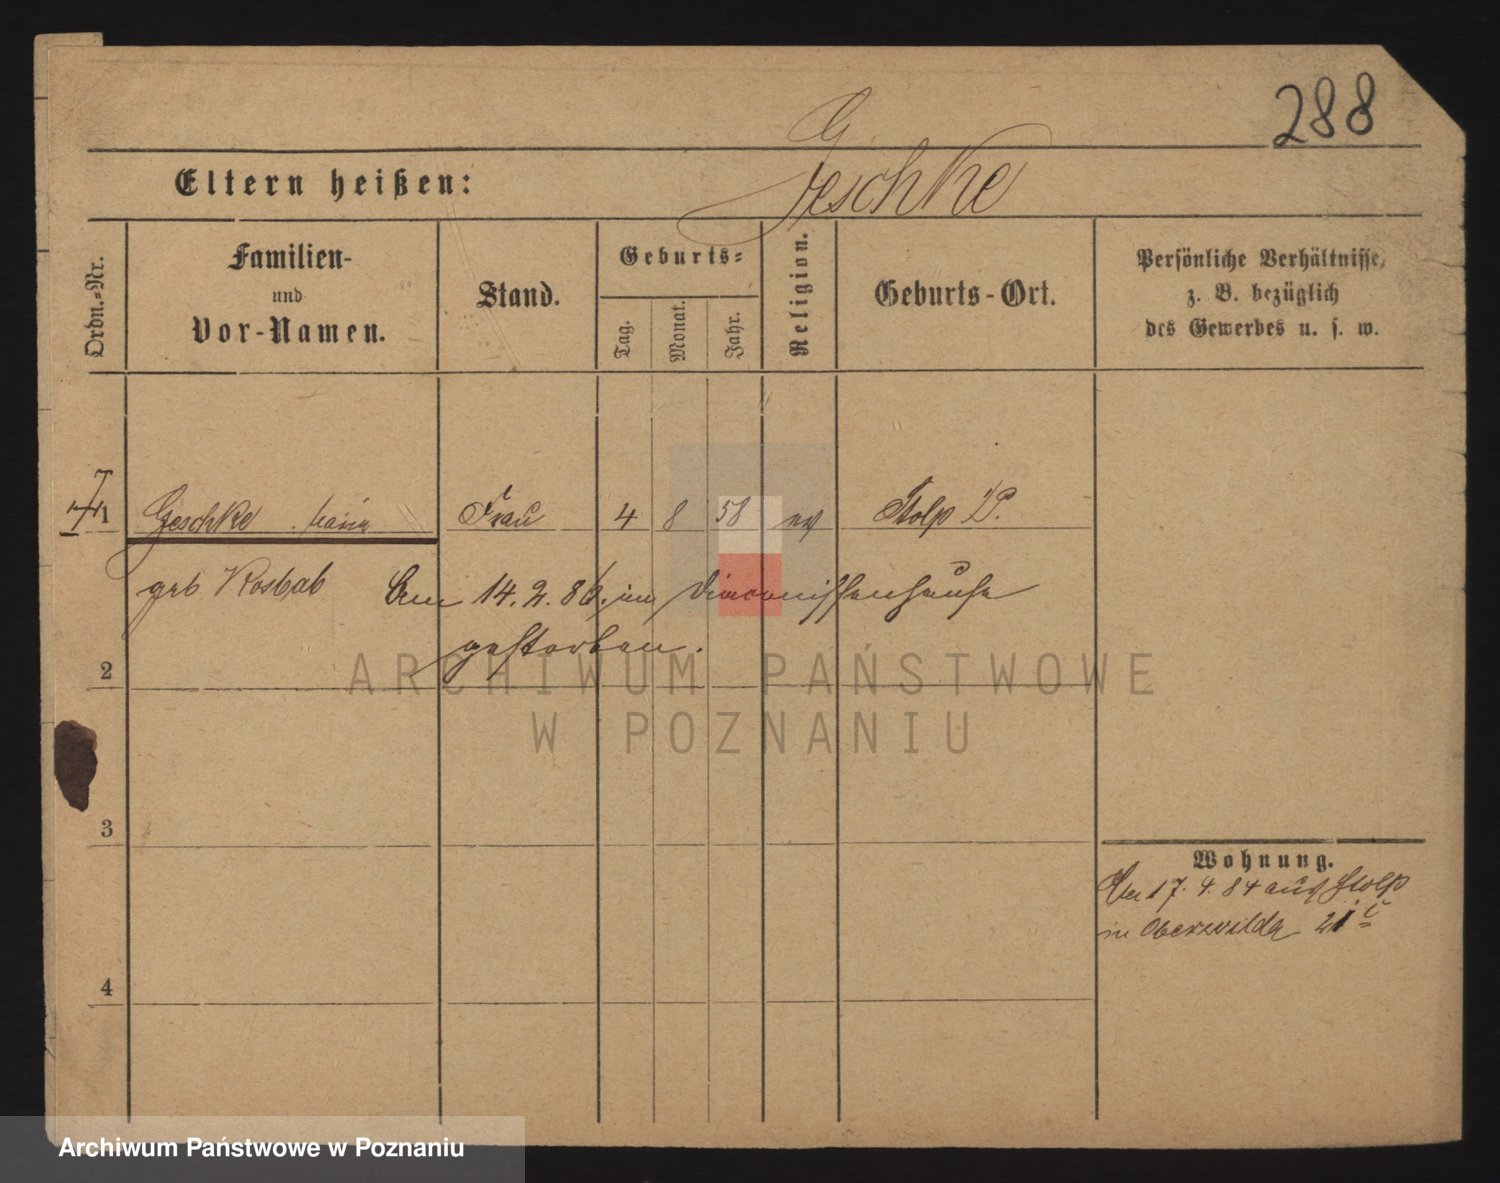 288
G.
Eltern heißen: Geschke
Ordn.=Nr.
Familien-
und
Vor-Namen.
Stand.
Geburts=
Tag.
Monat.
Jahr.
Religion.
Geburts-Ort.
Persönliche Verhältnisse,
z. B. bezüglich
des Gewerbes u. s. w.
1 Geschke Maria Frau 4 8 58 ev Stolp i/P.
geb Am 14. 2. 86. im Diaconissenhause
gestorben.
2
3
4
Wohnung.
17. 4. 84 aus Stolp
in Oberwilda 21
ARCHIWUM PAŃSTWOWE
W POZNANIU
Archiwum Państwowe w Poznaniu